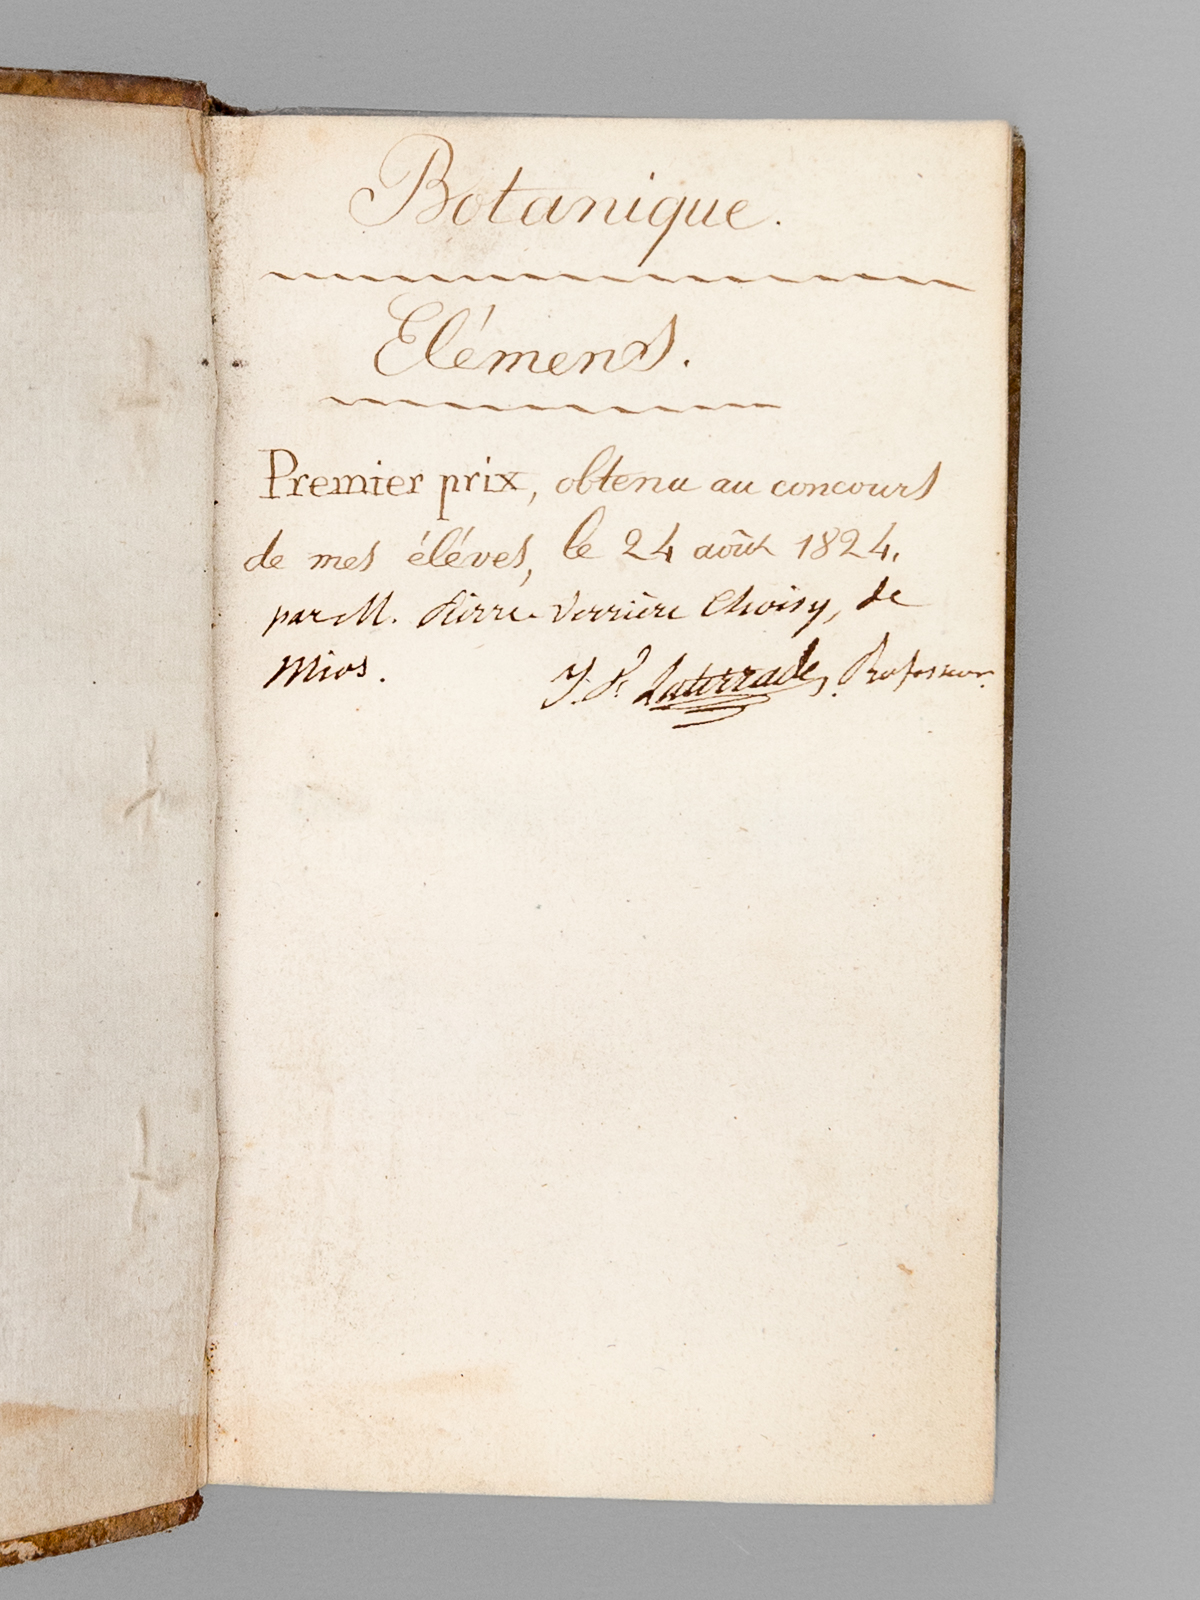 Botanique.
Elémens.
Premier prix, obtenu au concours
de mes éléves, le 24 août 1824,
par M. Pierre Verrière Choisy, de
Mios.
J. F. Laterrade, Professeur.